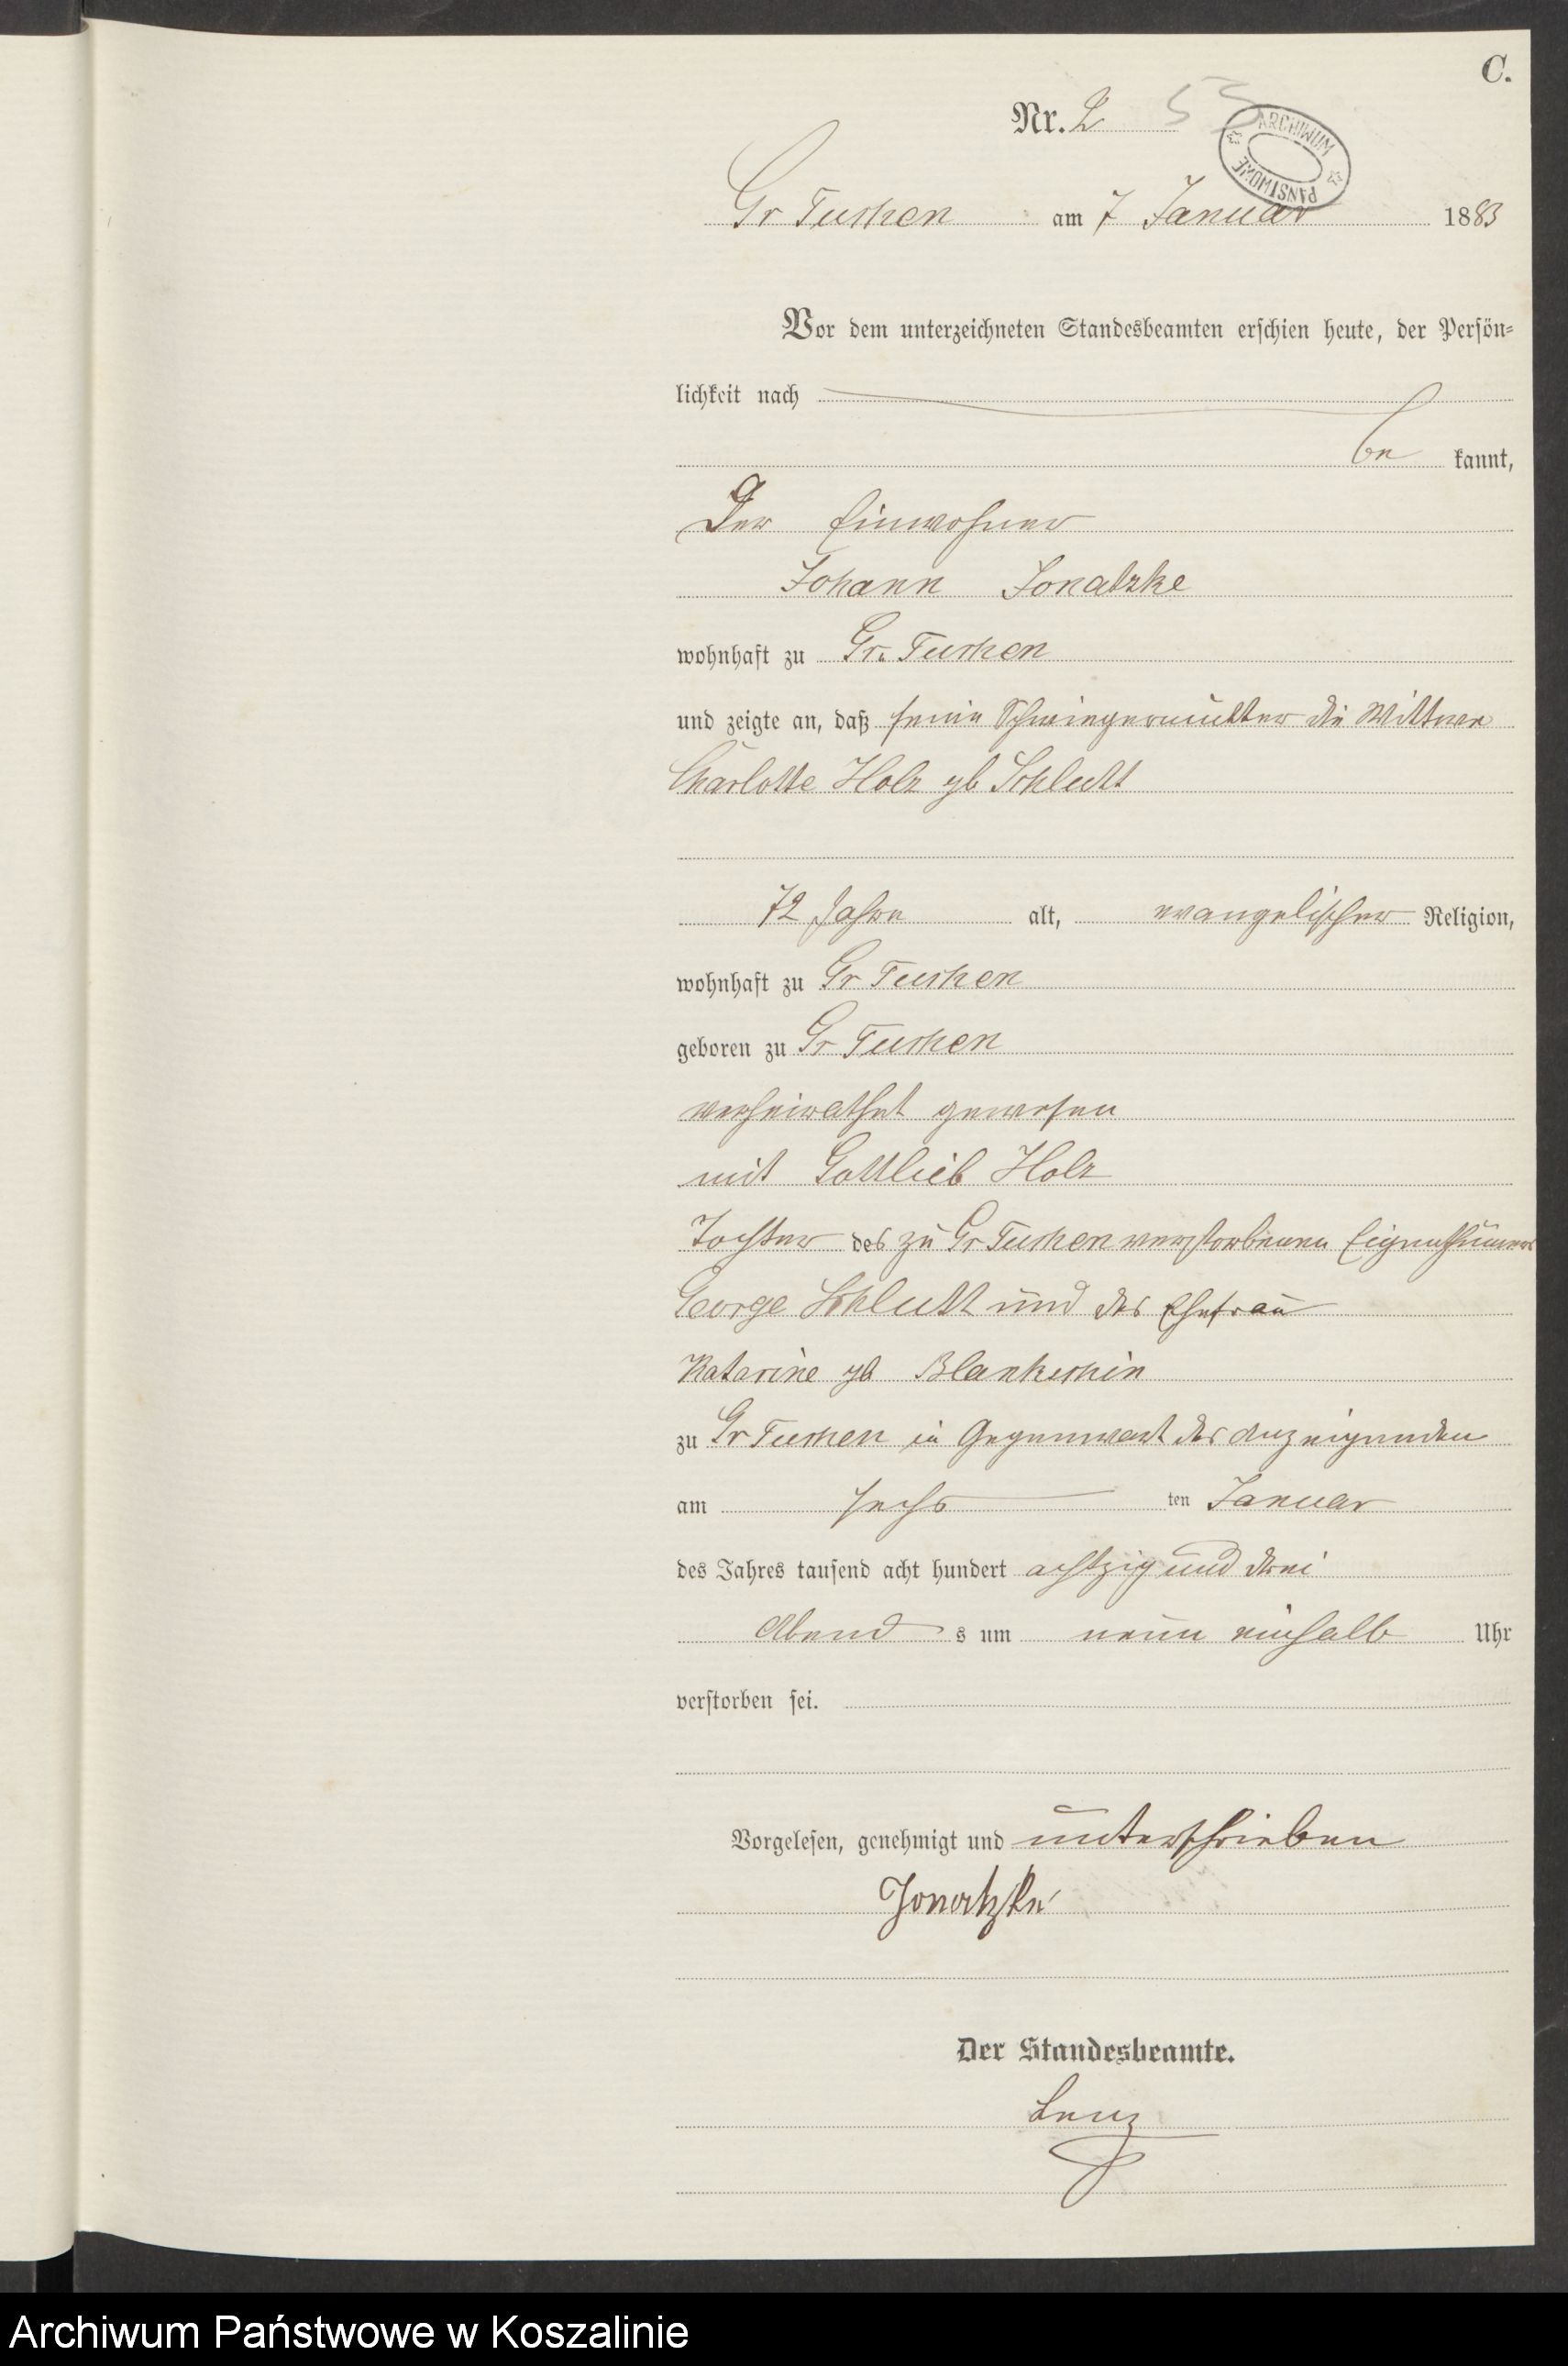 C.
Nr. 2 53
ARCHIWUM PAŃSTWOWE
Gr Tuchen am 7 Januar 1883
Vor dem unterzeichneten Standesbeamten erschien heute, der Persön=
lichkeit nach
be kannt,
Der Einwohner
Johann Jonatzke
wohnhaft zu Gr. Tuchen
und zeigte an, daß seine Schwiegermutter die Wittwe
Charlotte Holz gb Schlutt
72 Jahre alt, evangelischer Religion,
wohnhaft zu Gr Tuchen
geboren zu Gr Tuchen
verheirathet gewesen
mit Gottlieb Holz
Tochter des zu Gr Tuchen verstorbenen Eigenthümers
George Schlutt und der Ehefrau
Katarine gb
zu Gr Tuchen in Gegenwart des Anzeigenden
am sechs ten Januar
des Jahres tausend acht hundert achtzig und drei
Abend s um neun einhalb Uhr
verstorben sei.
Vorgelesen, genehmigt und unterschrieben
Jonatzke
Der Standesbeamte.
Lenz
Archiwum Państwowe w Koszalinie